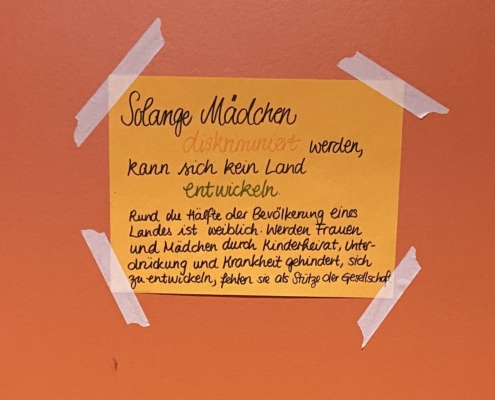 Solange Mädchen
diskriminiert werden,
kann sich kein Land
entwickeln.
Rund die Hälfte der Bevölkerung eines
Landes ist weiblich. Werden Frauen
und Mädchen durch Kinderheirat, Unter-
drückung und Krankheit gehindert, sich
zu entwickeln, fehlen sie als Stütze der Gesellschaft